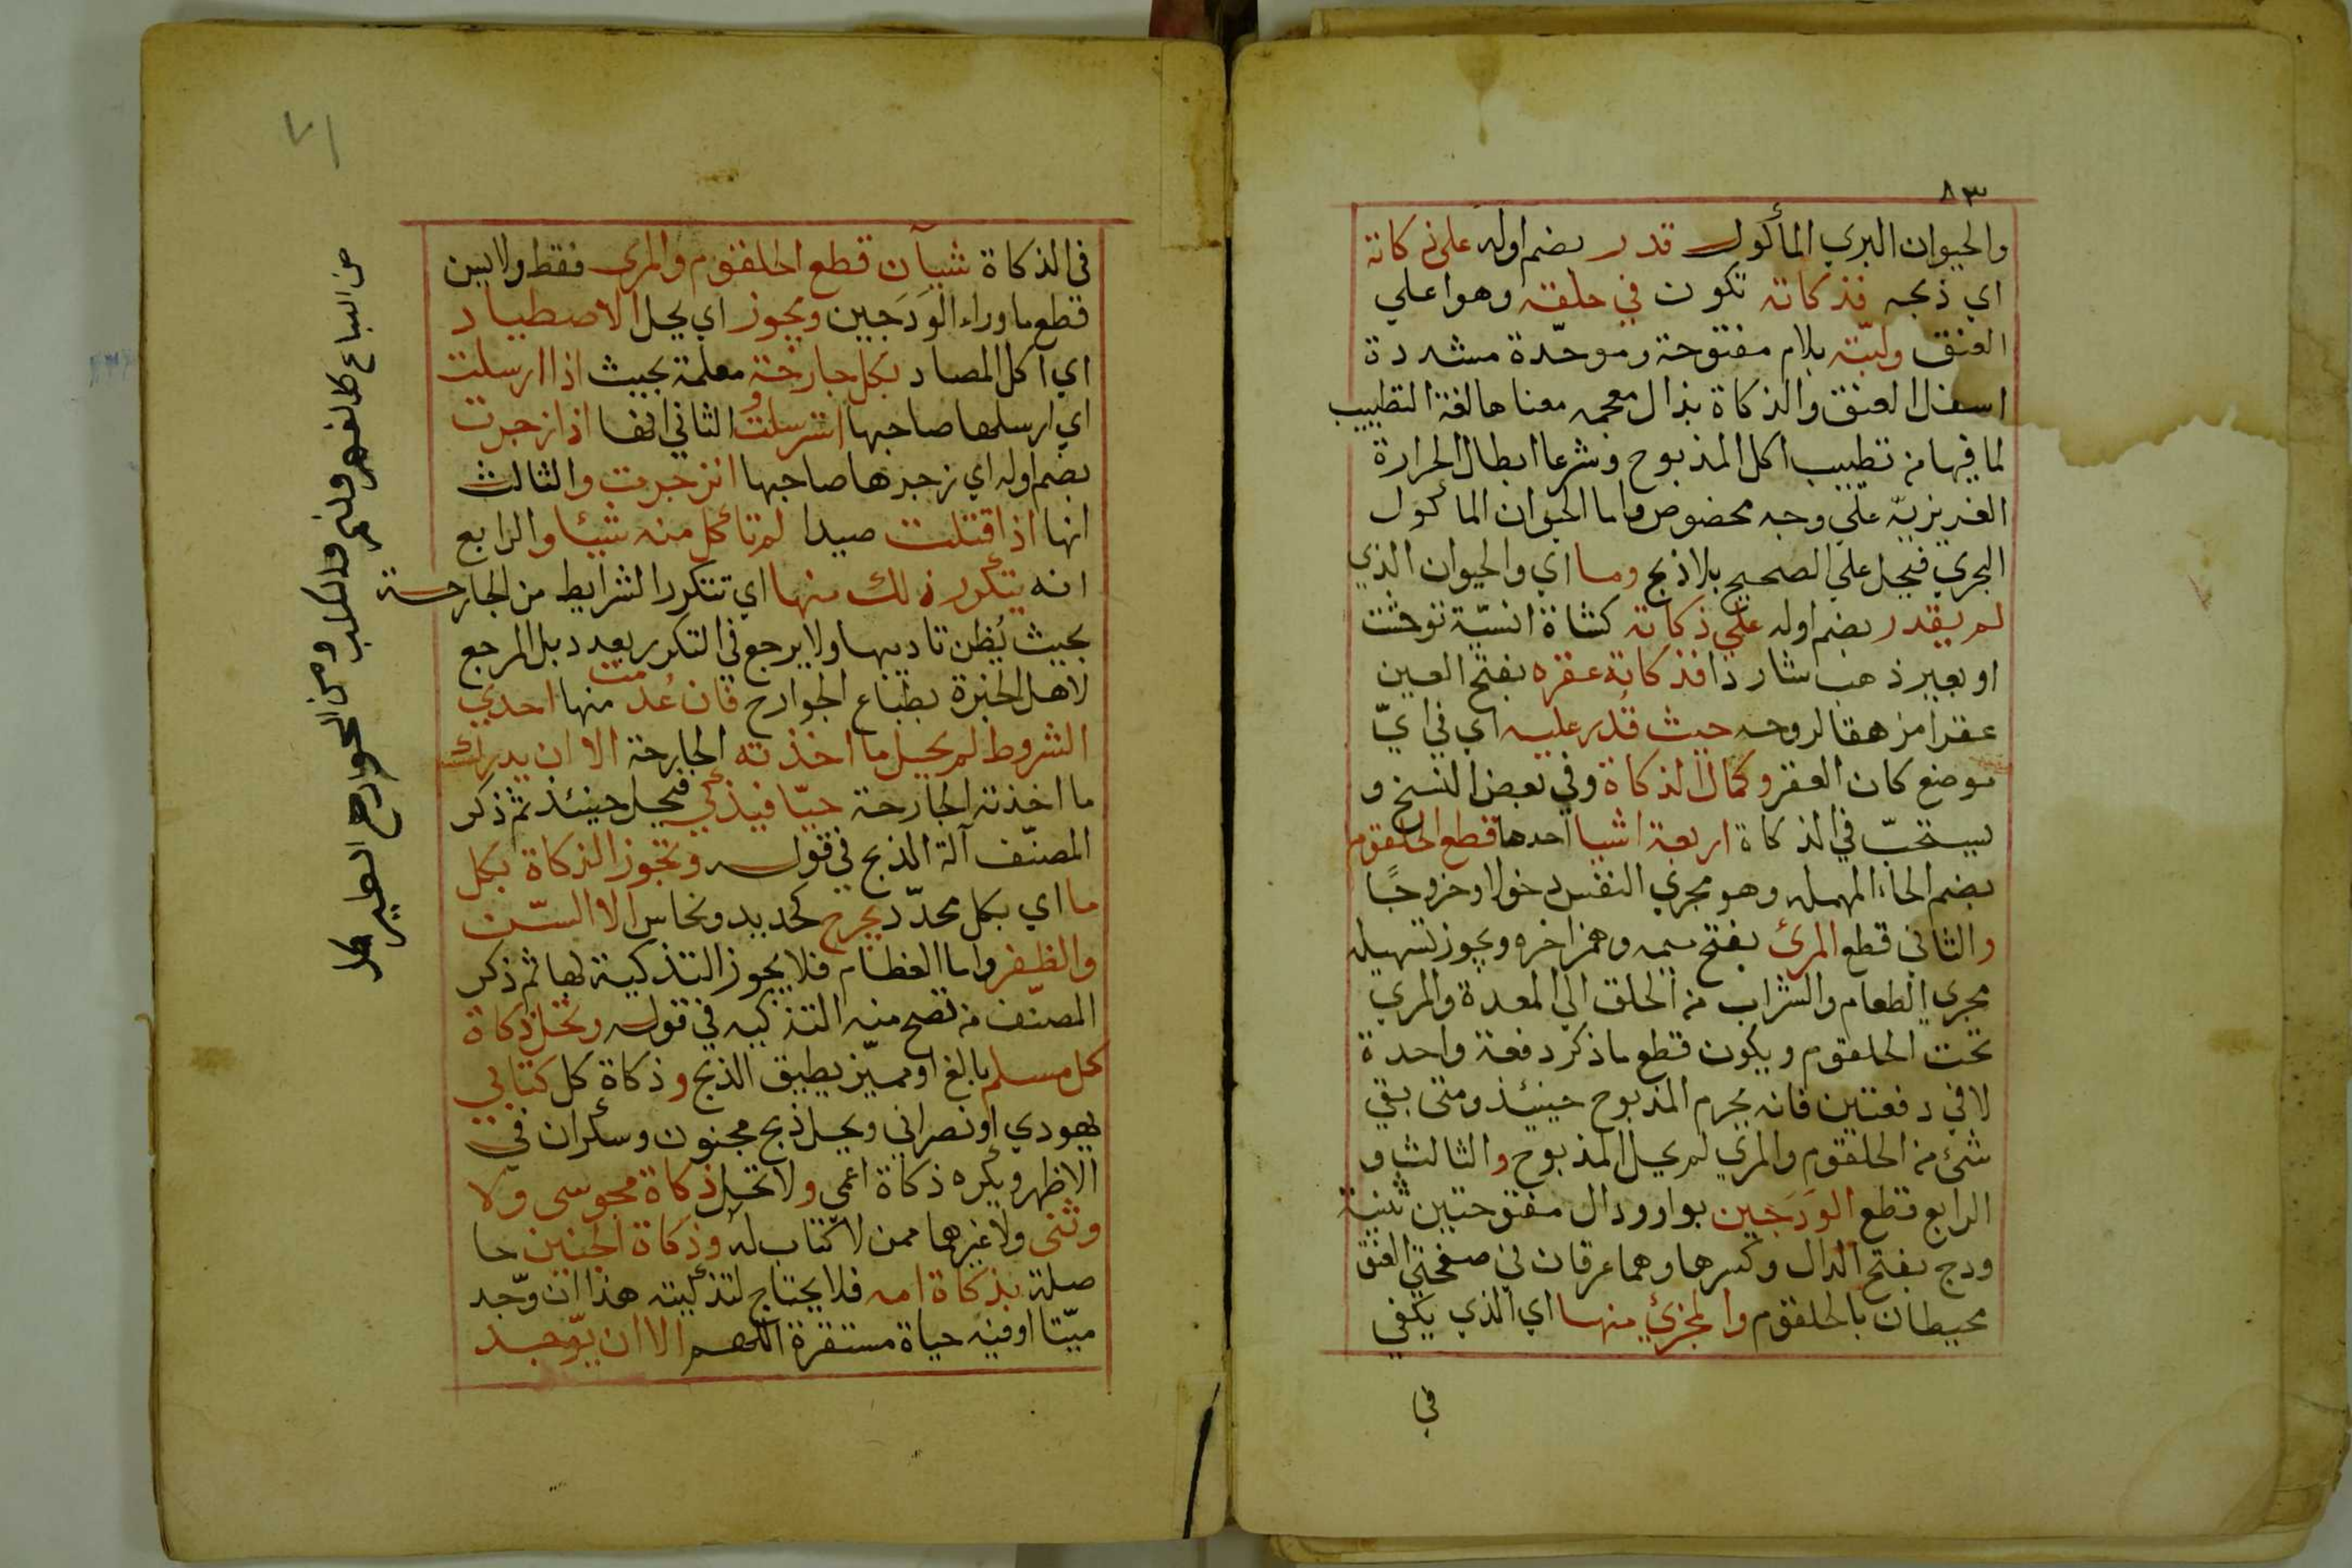 ٨٣
والحيوان البري المأكول قدر بضم اوله على ذكاته
اي ذبحه فذكاته تكون في حلقه وهو اعلي
العنق ولبّته بلام مفتوحة وموحّدة مشددة
اسفل العنق والذكاة بذال معجمه معناها لغة التطييب
لما فيها من تطييب اكل المذبوح وشرعا ابطال الحرارة
الغريزيّة علي وجه مخصوص واما الحيوان المأكول
البحري فيحل علي الصحيح بلا ذبح وما اي والحيوان الذي
لم يقدر بضم اوله علي ذكاته كشاة انسيّة توحشت
او بعير ذهب شاردا فذكاته عقره بفتح العين
عقرا مزهقا لروحه حيث قُدر عليه اي في ايّ
موضع كان العقر وكمال الذكاة وفي بعض النسخ و
يستحبّ في الذكاة اربعة اشيا احدها قطع الحلقوم
بضم الحاء المهمله وهو مجري النفس دخولا وخروجًا
والثاني قطع المرئ بفتح ميمه وهمز اخره ويجوز تسهيله
مجري الطعام والشراب من الحلق الي المعدة والمري
تحت الحلقوم ويكون قطع ما ذكر دفعة واحدة
لا في دفعتين فانه يحرم المذبوح حينئذ ومتى بقي
شئ من الحلقوم والمري لم يحل المذبوح والثالث و
الرابع قطع الوَدَجَين بواو ودال مفتوحتين تثنية
ودج بفتح الدال وكسرها وهما عرقان في صفحتي العنق
محيطان بالحلقوم والمجزئ منها اي الذي يكفي
في
٧١
في الذكاة شيآن قطع الحلقوم والمرى فقط ولا يسن
قطع ما وراء الوَدَجَين ويجوز اي يحل الاصطياد
اي اكل المصاد بكل جارحة معلمة بحيث اذا ارسلت
اي ارسلها صاحبها استرسلت و الثاني انها اذا زجرت
بضم اوله اي زجرها صاحبها انزجرت والثالث
انها اذا قتلت صيدا لم تأكل منه شيئا والرابع
انه يتكرر ذلك منها اي تتكرر الشرايط من الجارحة
بحيث يُظن تاديبها ولا يرجع في التكرر بعدد بل المرجع
لاهل الخبرة بطباع الجوارح فان عُدمت منها احدي
الشروط لم يحل ما اخذته الجارحة الا ان يدرك
ما اخذته الجارحة حيّا فيذكي فيحل حينئذ ثم ذكر
المصنّف آلة الذبح في قوله وتجوز الذكاة بكل
ما اي بكل محدّد يجرح كحديد ونحاس الا السّن
والظفر واما العظام فلا يجوز التذكية بها ثم ذكر
المصنّف من تصح منه التذكيه في قوله وتحل ذكاة
كل مسلم بالغ او مميّز يطيق الذبح وذكاة كل كتابي
يهودي او نصراني ويحل ذبح مجنون وسكران في
الاظهر ويكره ذكاة اعمي ولا تحل ذكاة مجوسى ولا
وثنى ولا غيرهما ممن لا كتاب له وذكاة الجنين حا
صلة بذكاة امه فلا يحتاج لتذكيته هذا ان وجد
ميّتا او فيه حياة مستقرة اللهم الا ان يوجد
من السباع كالفهد والنمر والكلب ومن الجوارح الطير كا